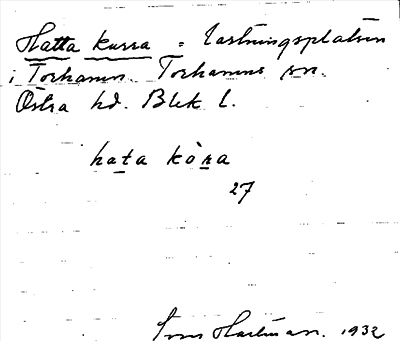 Hatta kurra = Lastningsplatsen
i Torhamn. Torhamns sn.
Östra hd. Blek l.
hata kòra
27
Hartman. 1932